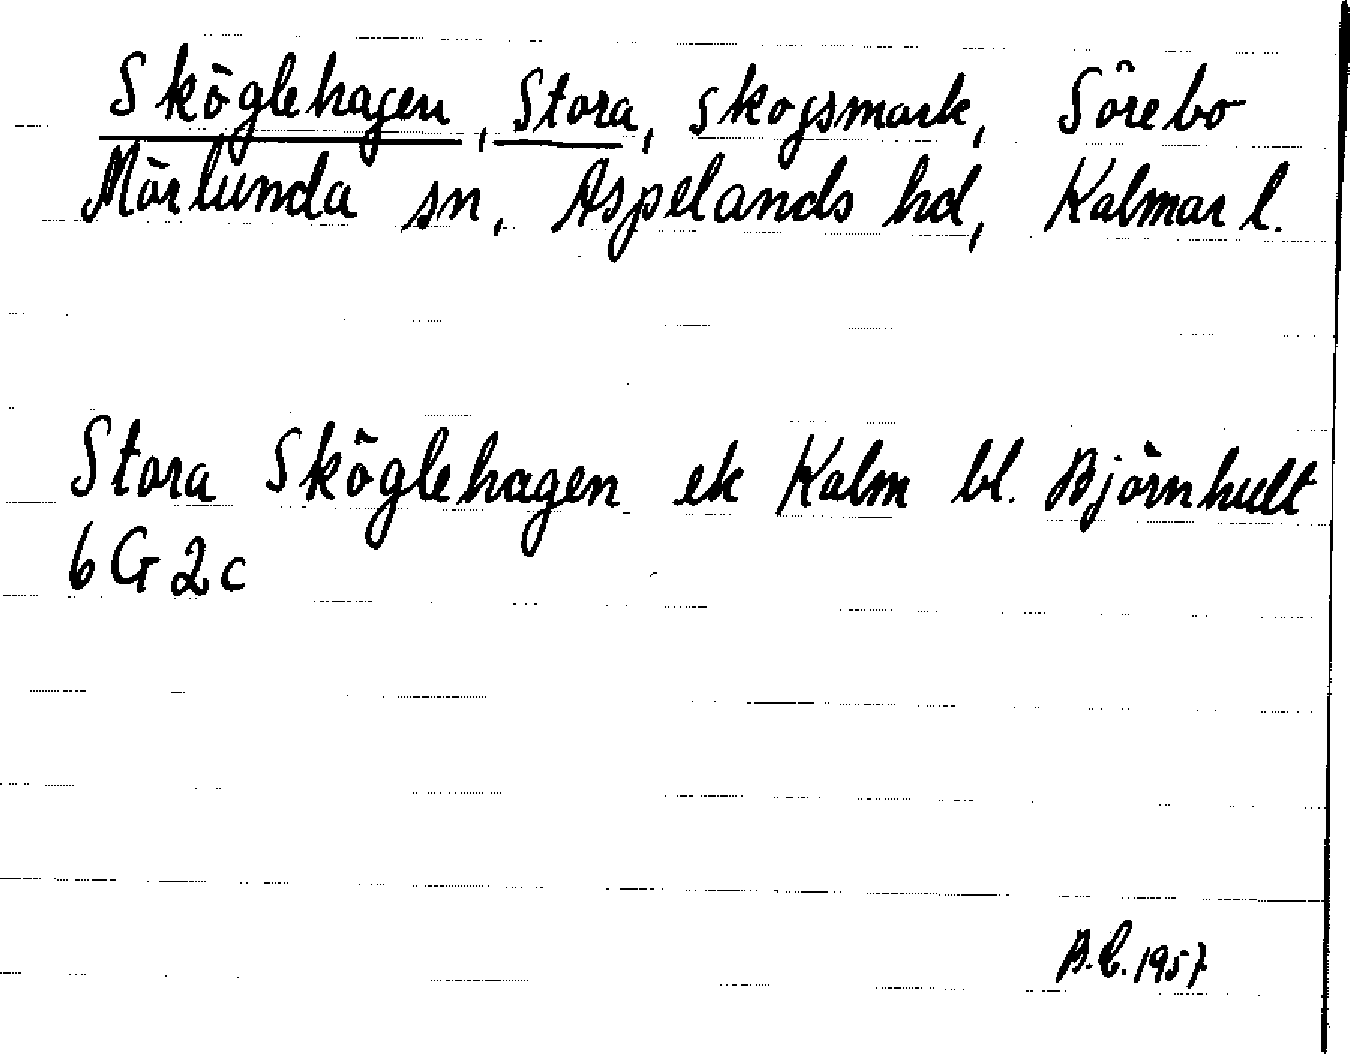 Sköglehagen, Stora, skogsmark, Sörebo
Mörlunda sn, Aspelands hd, Kalmar l.
Stora Sköglehagen ek Kalm bl. Björnhult
6G2c
B.C. 1957